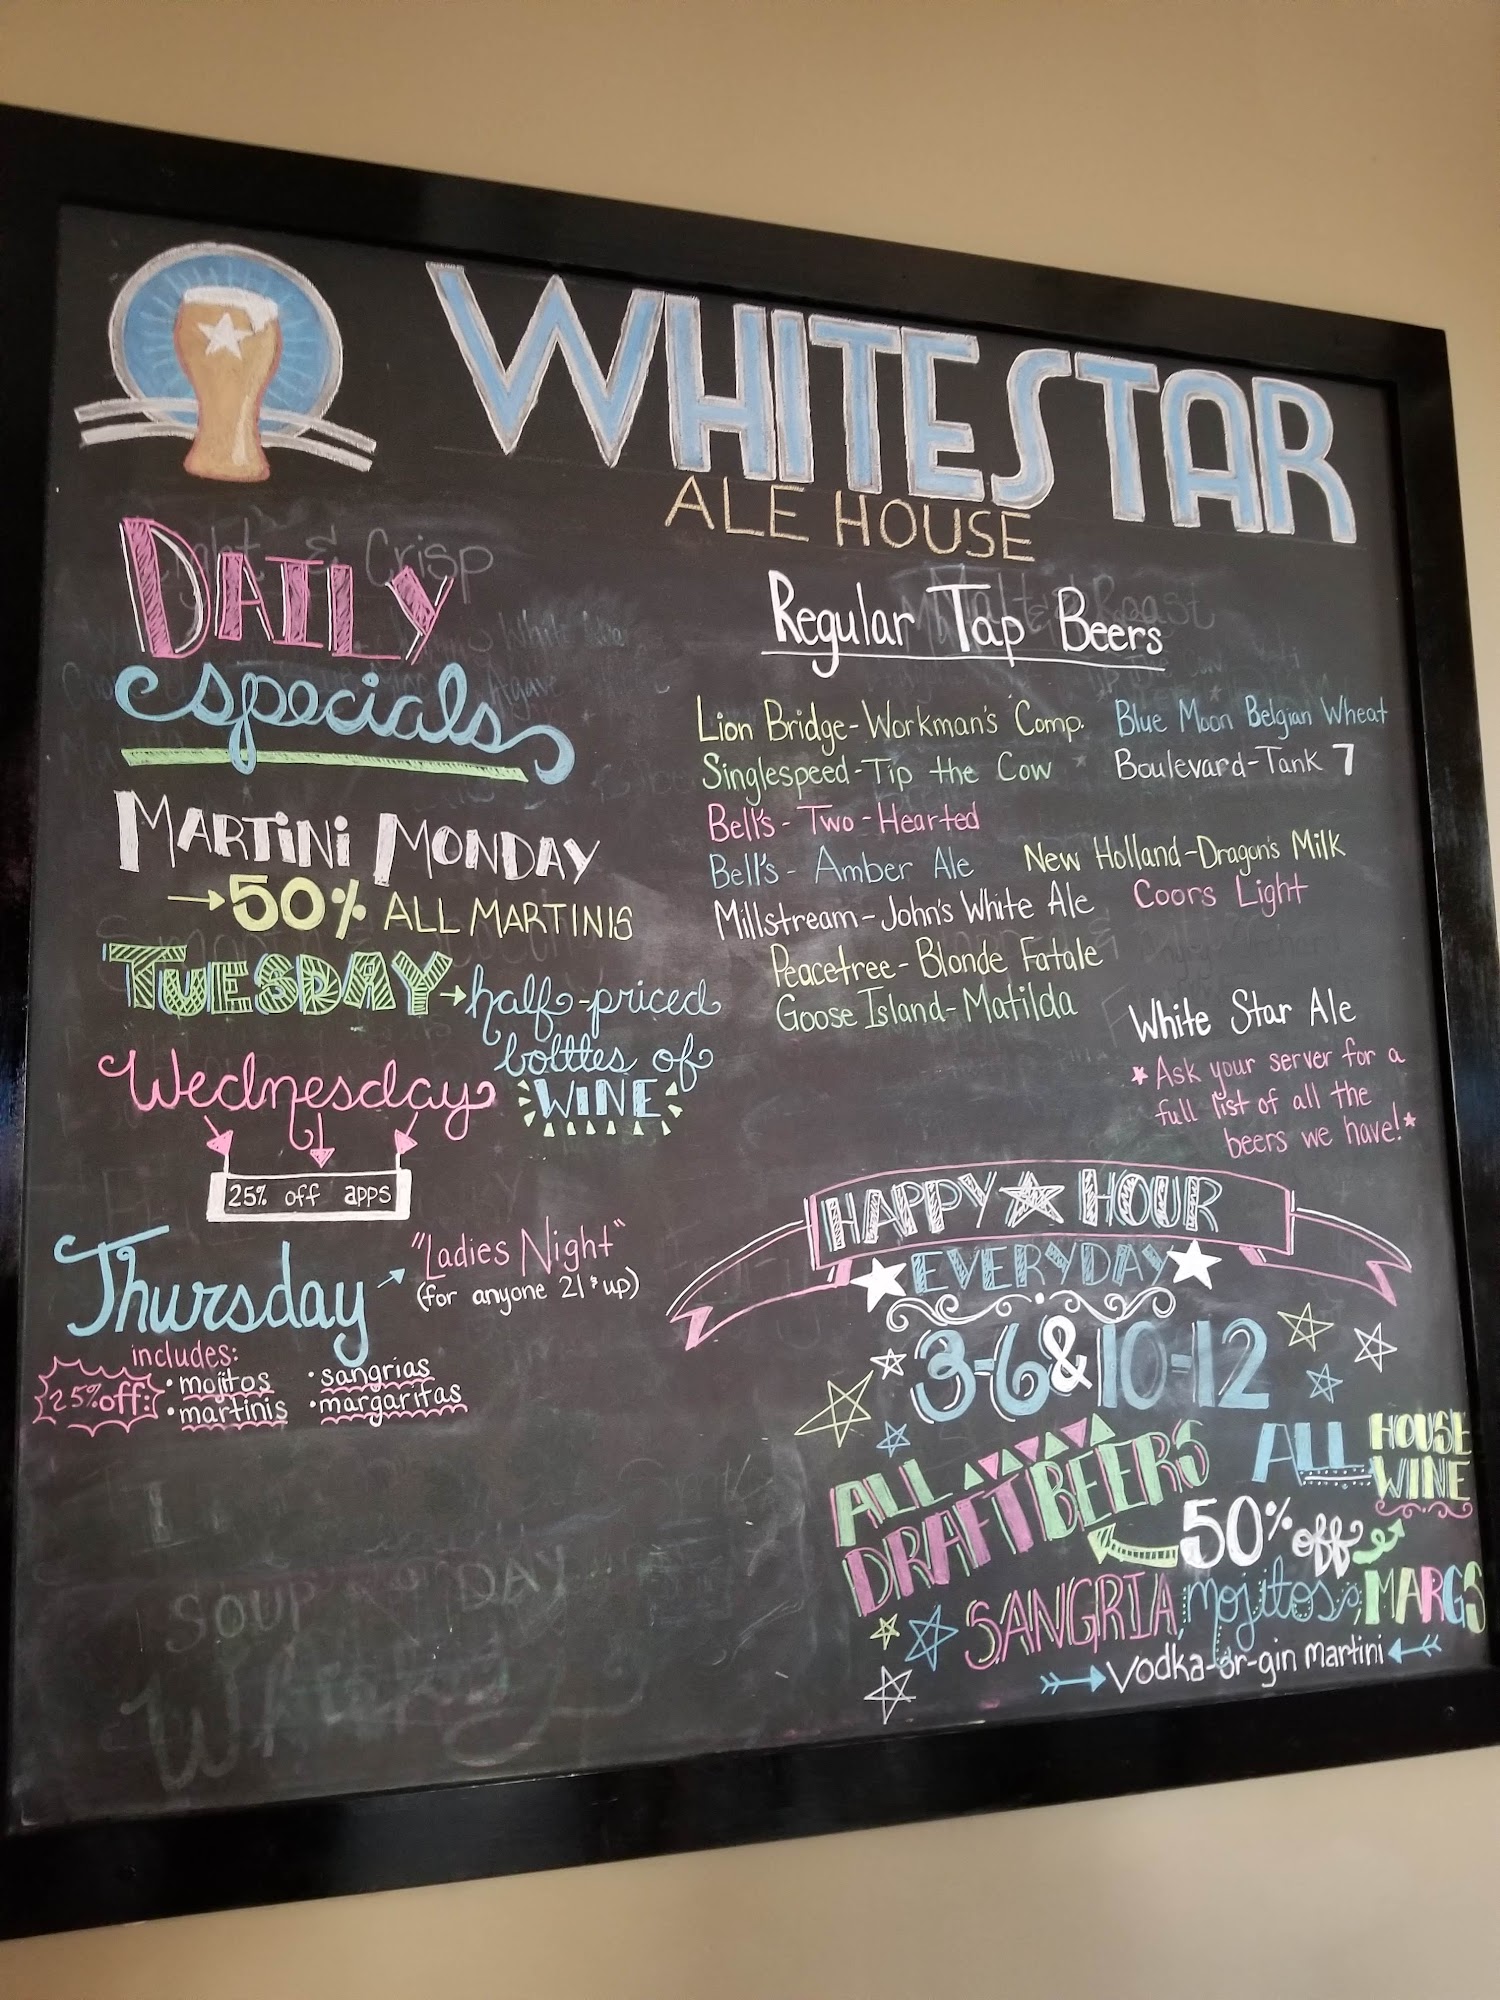 WHITE STAR
ALE HOUSE
DAILY
especials
MARTINI MONDAY
→50% ALL MARTINIS
TUESDAY→half-priced
bolttes of
WINE
Wednesday
25% off apps
Thursday
"Ladies Night"
(for anyone 21 & up)
includes:
25% off:
• mojitos
• sangrias
• martinis
• margaritas
Regular Tap Beers
Lion Bridge-Workman's Comp.
Blue Moon Belgian Wheat
Singlespeed-Tip the Cow
Boulevard-Tank 7
Bell's-Two-Hearted
Bell's-Amber Ale
New Holland-Dragon's Milk
Millstream-John's White Ale
Coors Light
Peacetree-Blonde Fatale
Goose Island-Matilda
White Star Ale
* Ask your server for a
full list of all the
beers we have! *
HAPPY ☆ HOUR
★ EVERYDAY ★
3-6 & 10-12
ALL
DRAFT BEERS
ALL HOUSE
WINE
50% off
SANGRIA, mojitos, MARGS
→ Vodka-or-gin martini ←
& Crisp
Roast
White
Agave
SOUP
DAY